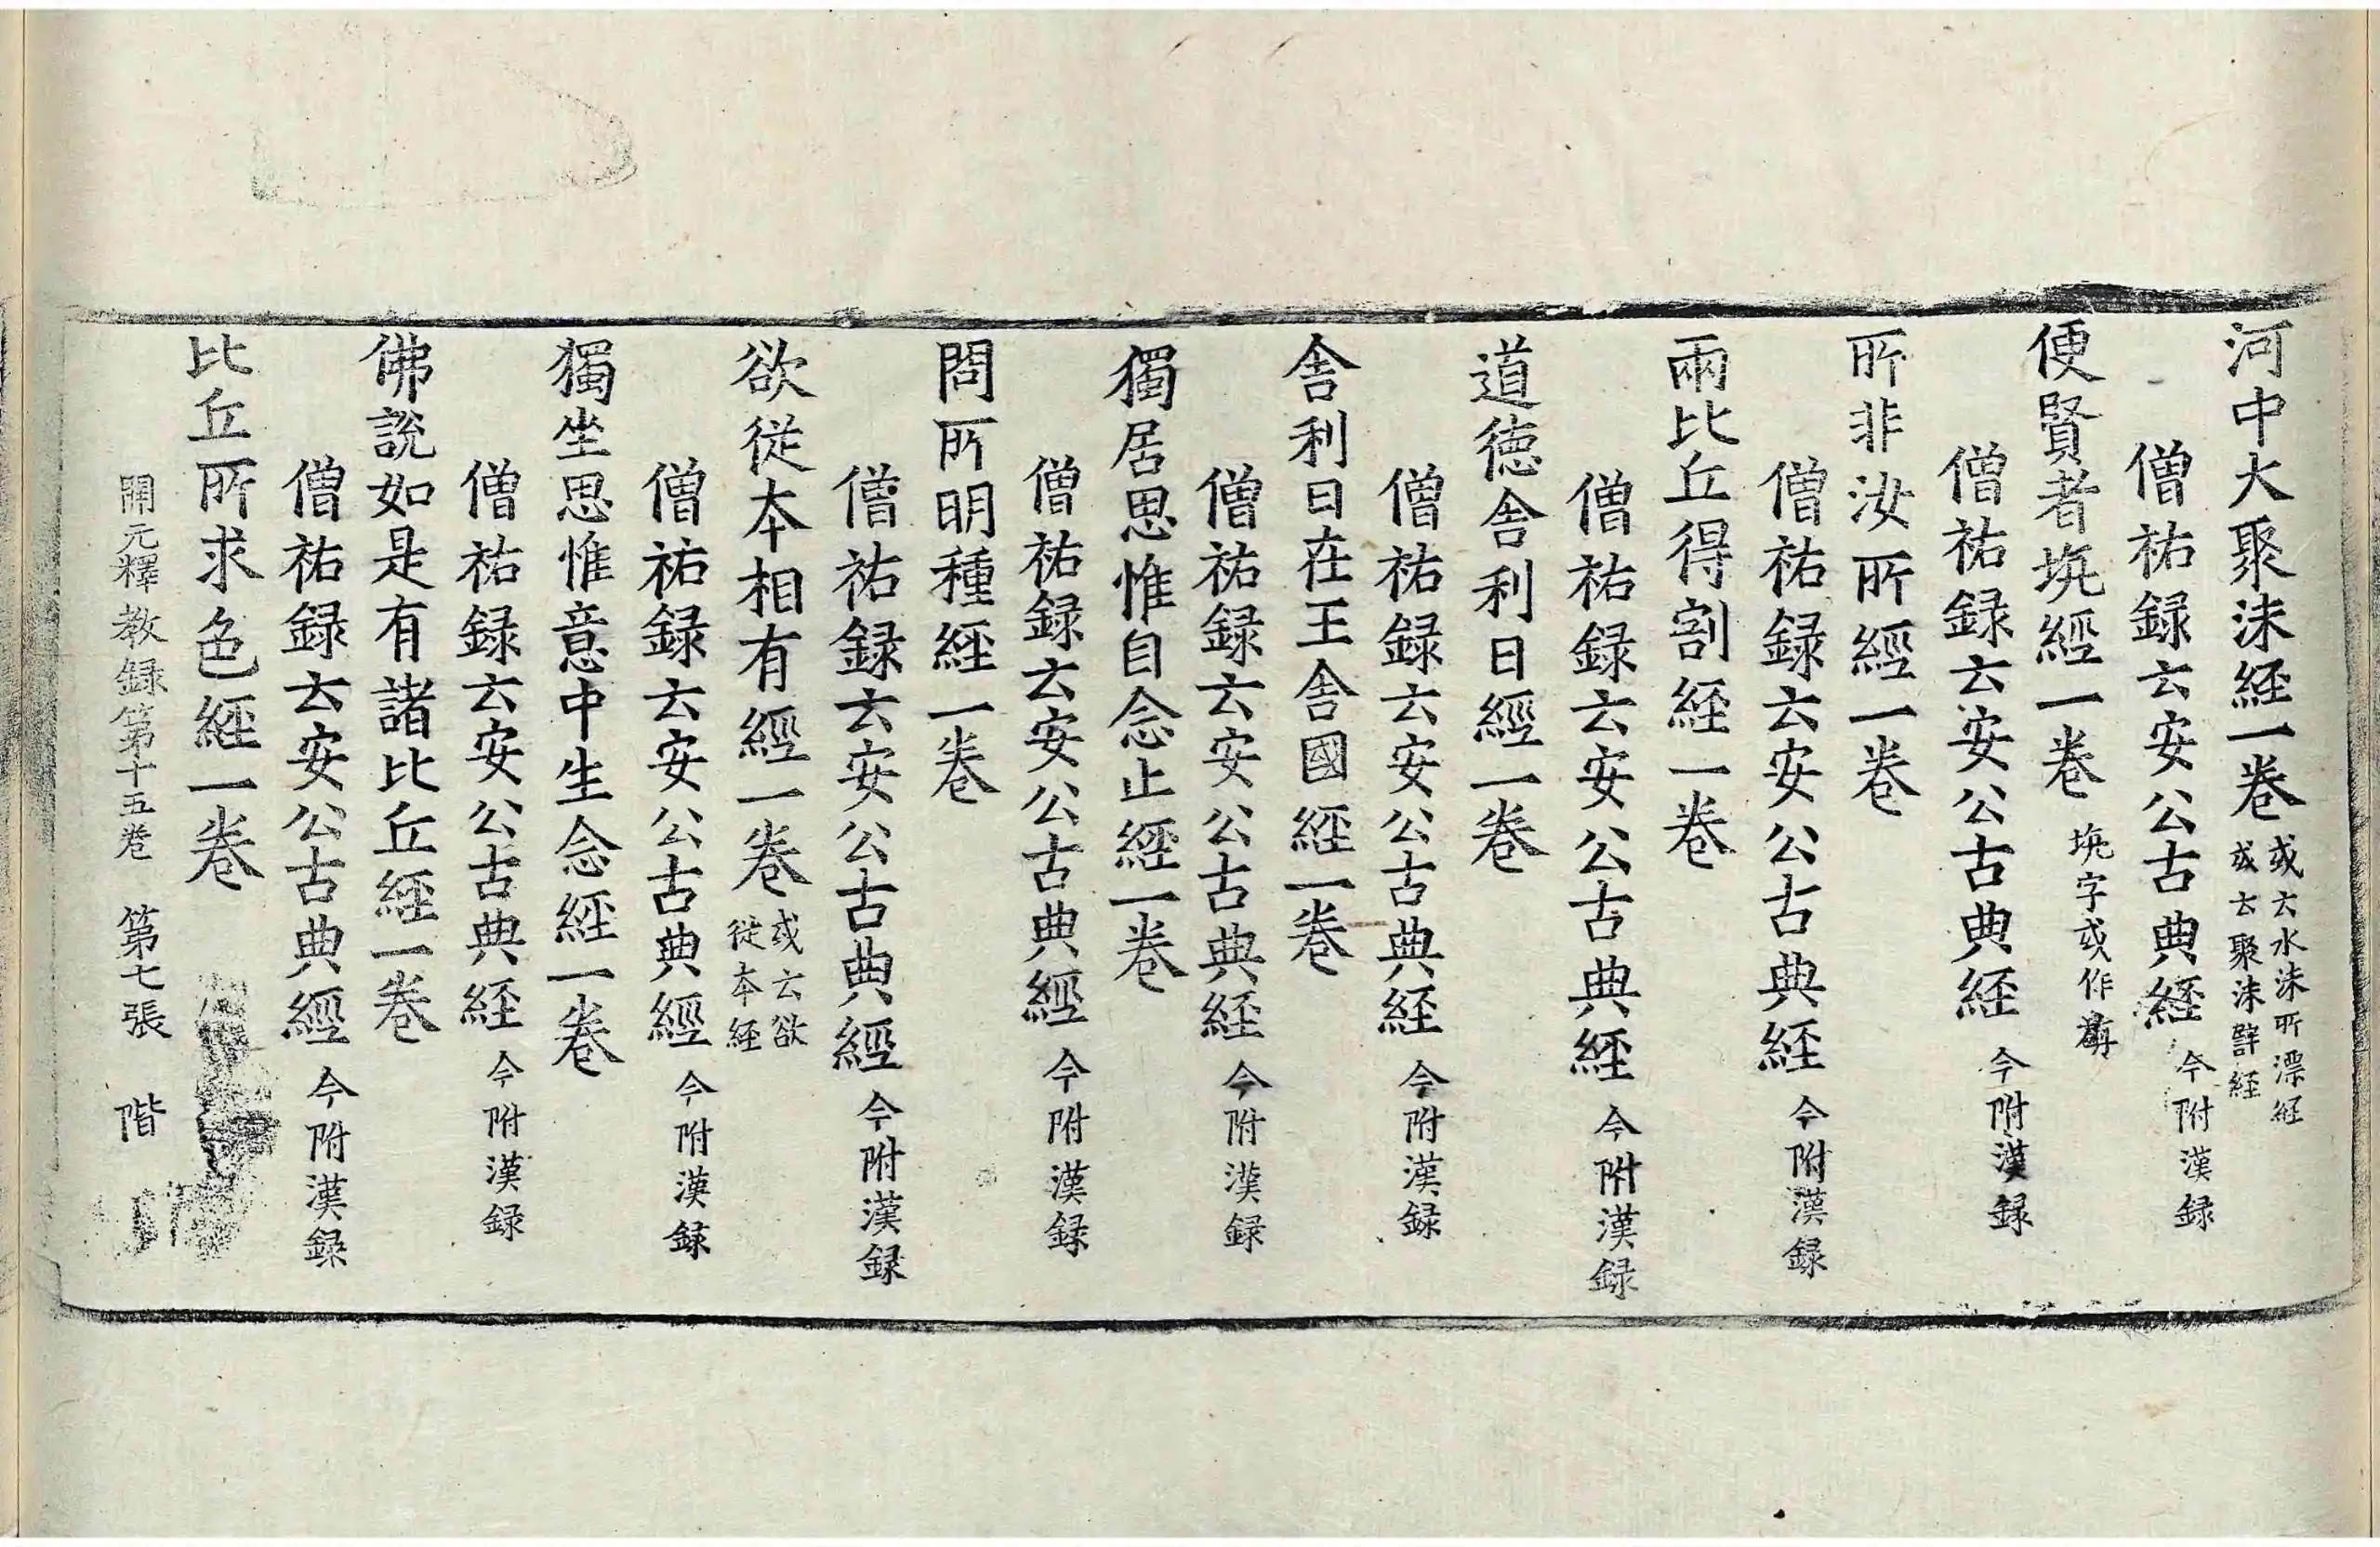 河中大聚沫経一卷 或云水沫所漂経 或云聚沫譬経
僧祐録云安公古典経 今附漢録
便賢者坈經一卷 坈字或作旃
僧祐録云安公古典経 今附漢録
所非汝所經一卷
僧祐録云安公古典経 今附漢録
兩比丘得割経一卷
僧祐録云安公古典経 今附漢録
道徳舍利日經一卷
僧祐録云安公古典経 今附漢録
舍利日在王舍國経一卷
僧祐録云安公古典経 今附漢録
獨居思惟自念止経一卷
僧祐録云安公古典經 今附漢録
問所明種経一卷
僧祐録云安公古典經 今附漢録
欲従本相有經一卷 或云欲従本経
僧祐録云安公古典經 今附漢録
獨坐思惟意中生念経一卷
僧祐録云安公古典経 今附漢録
佛說如是有諸比丘経一卷
僧祐録云安公古典經 今附漢録
比丘所求色経一卷
開元釋教録第十五卷 第七張 階